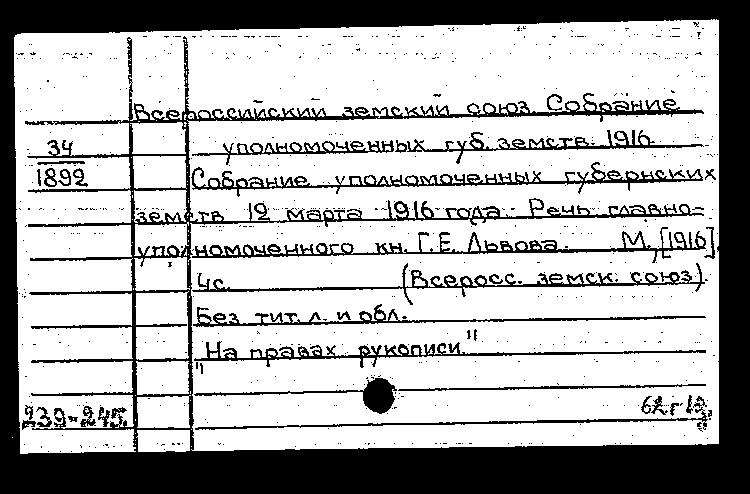 Всероссийский земский союз. Собрание
уполномоченных губ. земств. 1916.
34
1892
Собрание уполномоченных губернских
земств 12 марта 1916 года. Речь главно-
уполномоченного кн. Г.Е. Львова. М., [1916].
4с. (Всеросс. земск. союз).
Без тит. л. и обл.
„На правах рукописи"
239-245.
62г